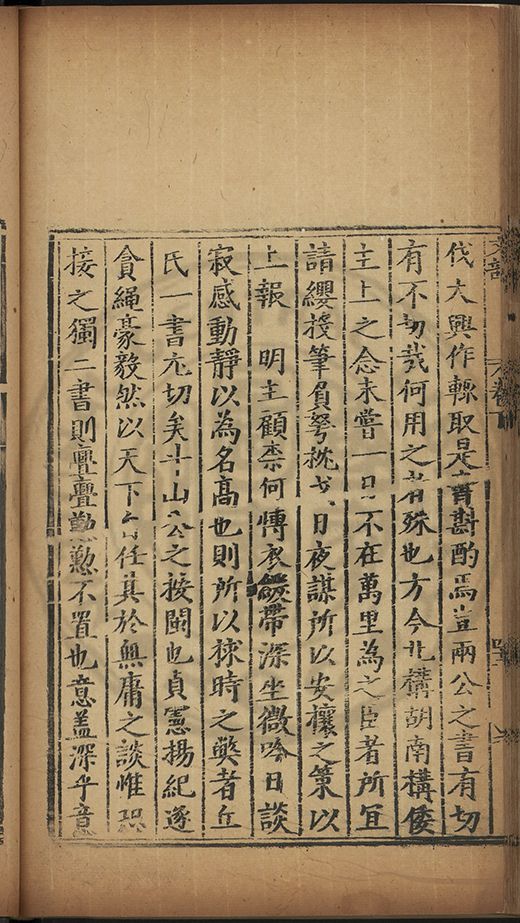 伐大興作輙取是■■斟酌焉豈兩公之書有切
有不切哉何用之者殊也方今北構胡南構倭
主上之念未嘗一日不在萬里為之臣者所宜
請纓投筆負弩枕戈日夜謀所以安攘之策以
上報　明主顧柰何愽衣緩帶深坐微吟日談
寂感動靜以為名高也則所以捄時之獘者丘
氏一書尤切矣斗山公之按閩也貞憲揚紀逐
貪繩豪毅然以天下自任其於無庸之談惟恐
接之獨二書則亹亹懃懃不置也意盖深乎意